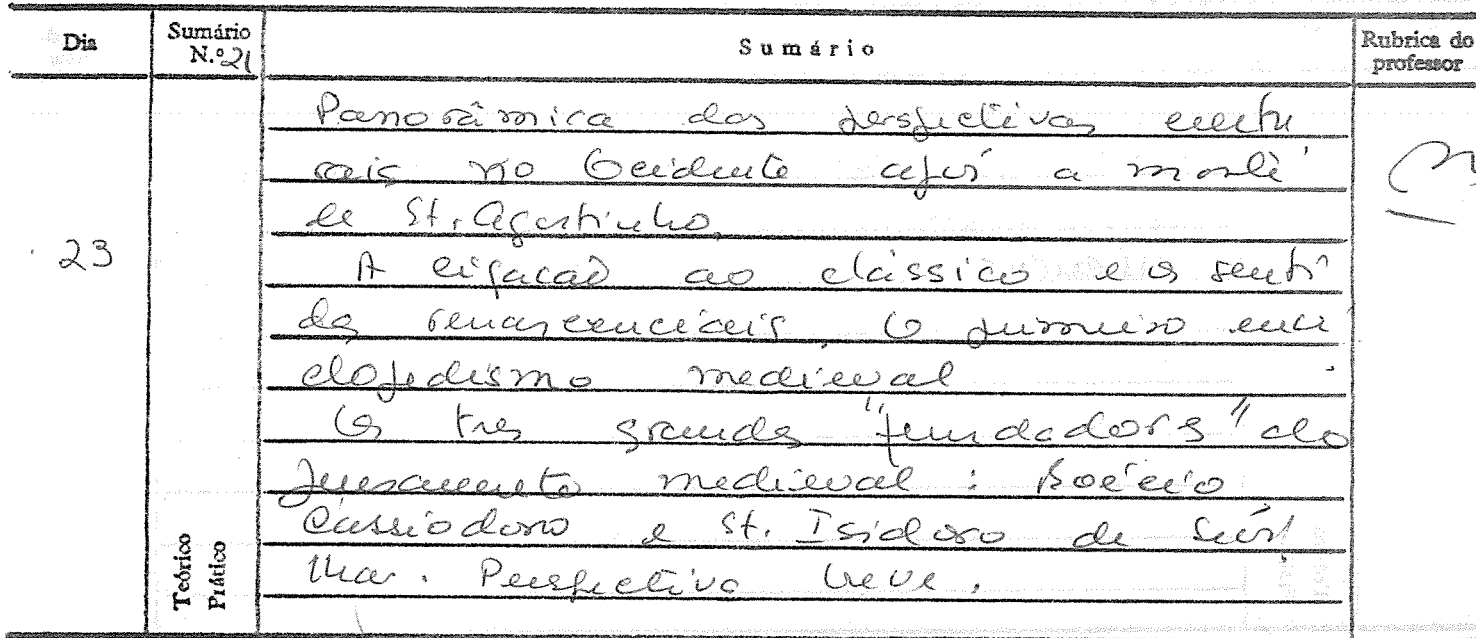 Dia
Sumário N.º 21
Sumário
Rubrica do professor
Panorâmica das perspectivas cultu
rais no Ocidente após a morte
de St. Agostinho.
23
A ligação ao clássico e os senti
dos renascenciais. O primeiro enci
clopedismo medieval
Os tres grandes "fundadores" do
pensamento medieval : Boécio
Cassiodoro e St. Isidoro de Sevi
lha. Perspectiva breve.
Teórico
Prático